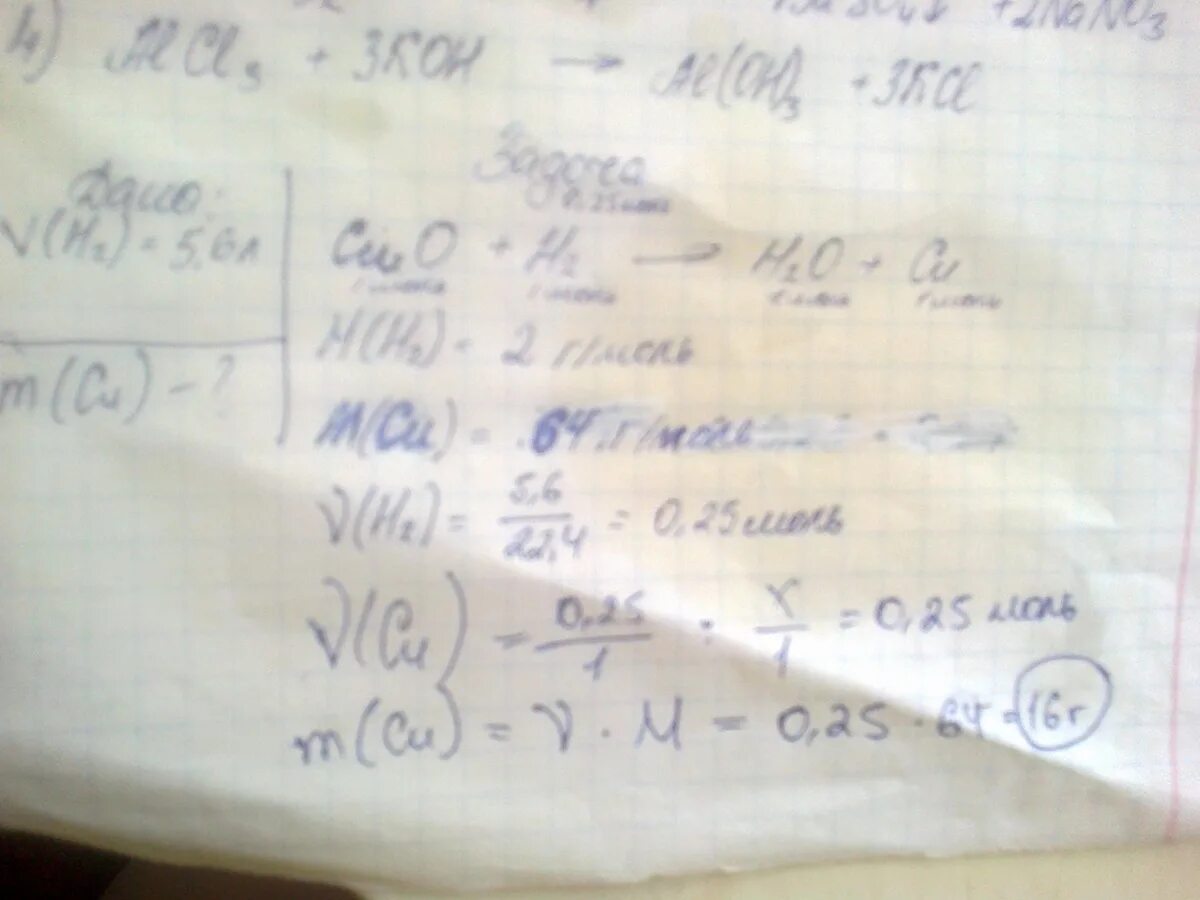 +2NaNO₃
4) AlCl₃ + 3KOH → Al(OH)₃ + 3KCl
Задача
Дано:
V(H₂) = 5,6л
m(Cu) - ?
0,25моль
CuO + H₂ → H₂O + Cu
1моль 1моль 1моль 1моль
M(H₂) = 2 г/моль
M(Cu) = 64 г/моль
ν(H₂) = 5,6/22,4 = 0,25моль
ν(Cu) = 0,25/1 : x/1 = 0,25 моль
m(Cu) = ν · M = 0,25 · 64 = 16г